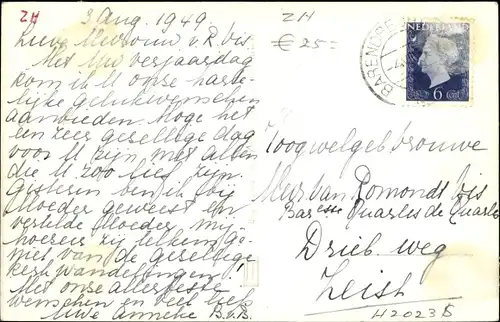 ZH
3 Aug. 1949.
Lieve Mevrouw v.R. bis
Met Uw verjaardag
kom ik U onze harte-
lijke gelukwenschen
aanbieden. Moge het
een zeer gezellige dag
voor U zijn, met allen
die U zoo lief zijn.
Gisteren ben ik bij
Moeder geweest en
vertelde Moeder mij
hoezeer zij telkens ge-
niet van de gezellige
kerkwandelingen!
Met onze allerbeste
wenschen en veel liefs
Uwe Anneke B.v.B.
ZH
€ 25=
BARENDRE
NEDERLAND
6 Cent
Hoogwelgebr. vrouwe
Mevr. van Romondt Vis
Baresse Quarles de Quarles
Drieb. weg
Zeist
H20238